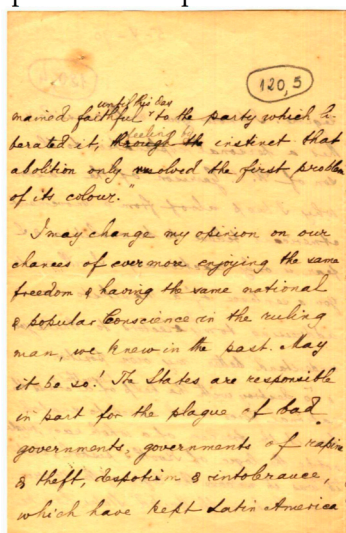 120,5
until this day
mained faithful to the party which li-
berated it, feeling by through the instinct that
abolition only resolved the first problem
of its colour."
I may change my opinion on our
chances of evermore enjoying the same
freedom & having the same national
& popular Conscience in the ruling
man, we knew in the past. May
it be so! The States are responsible
in part for the plague of bad
governments, governments of rapine
& theft, despotism & intolerance,
which have kept Latin America